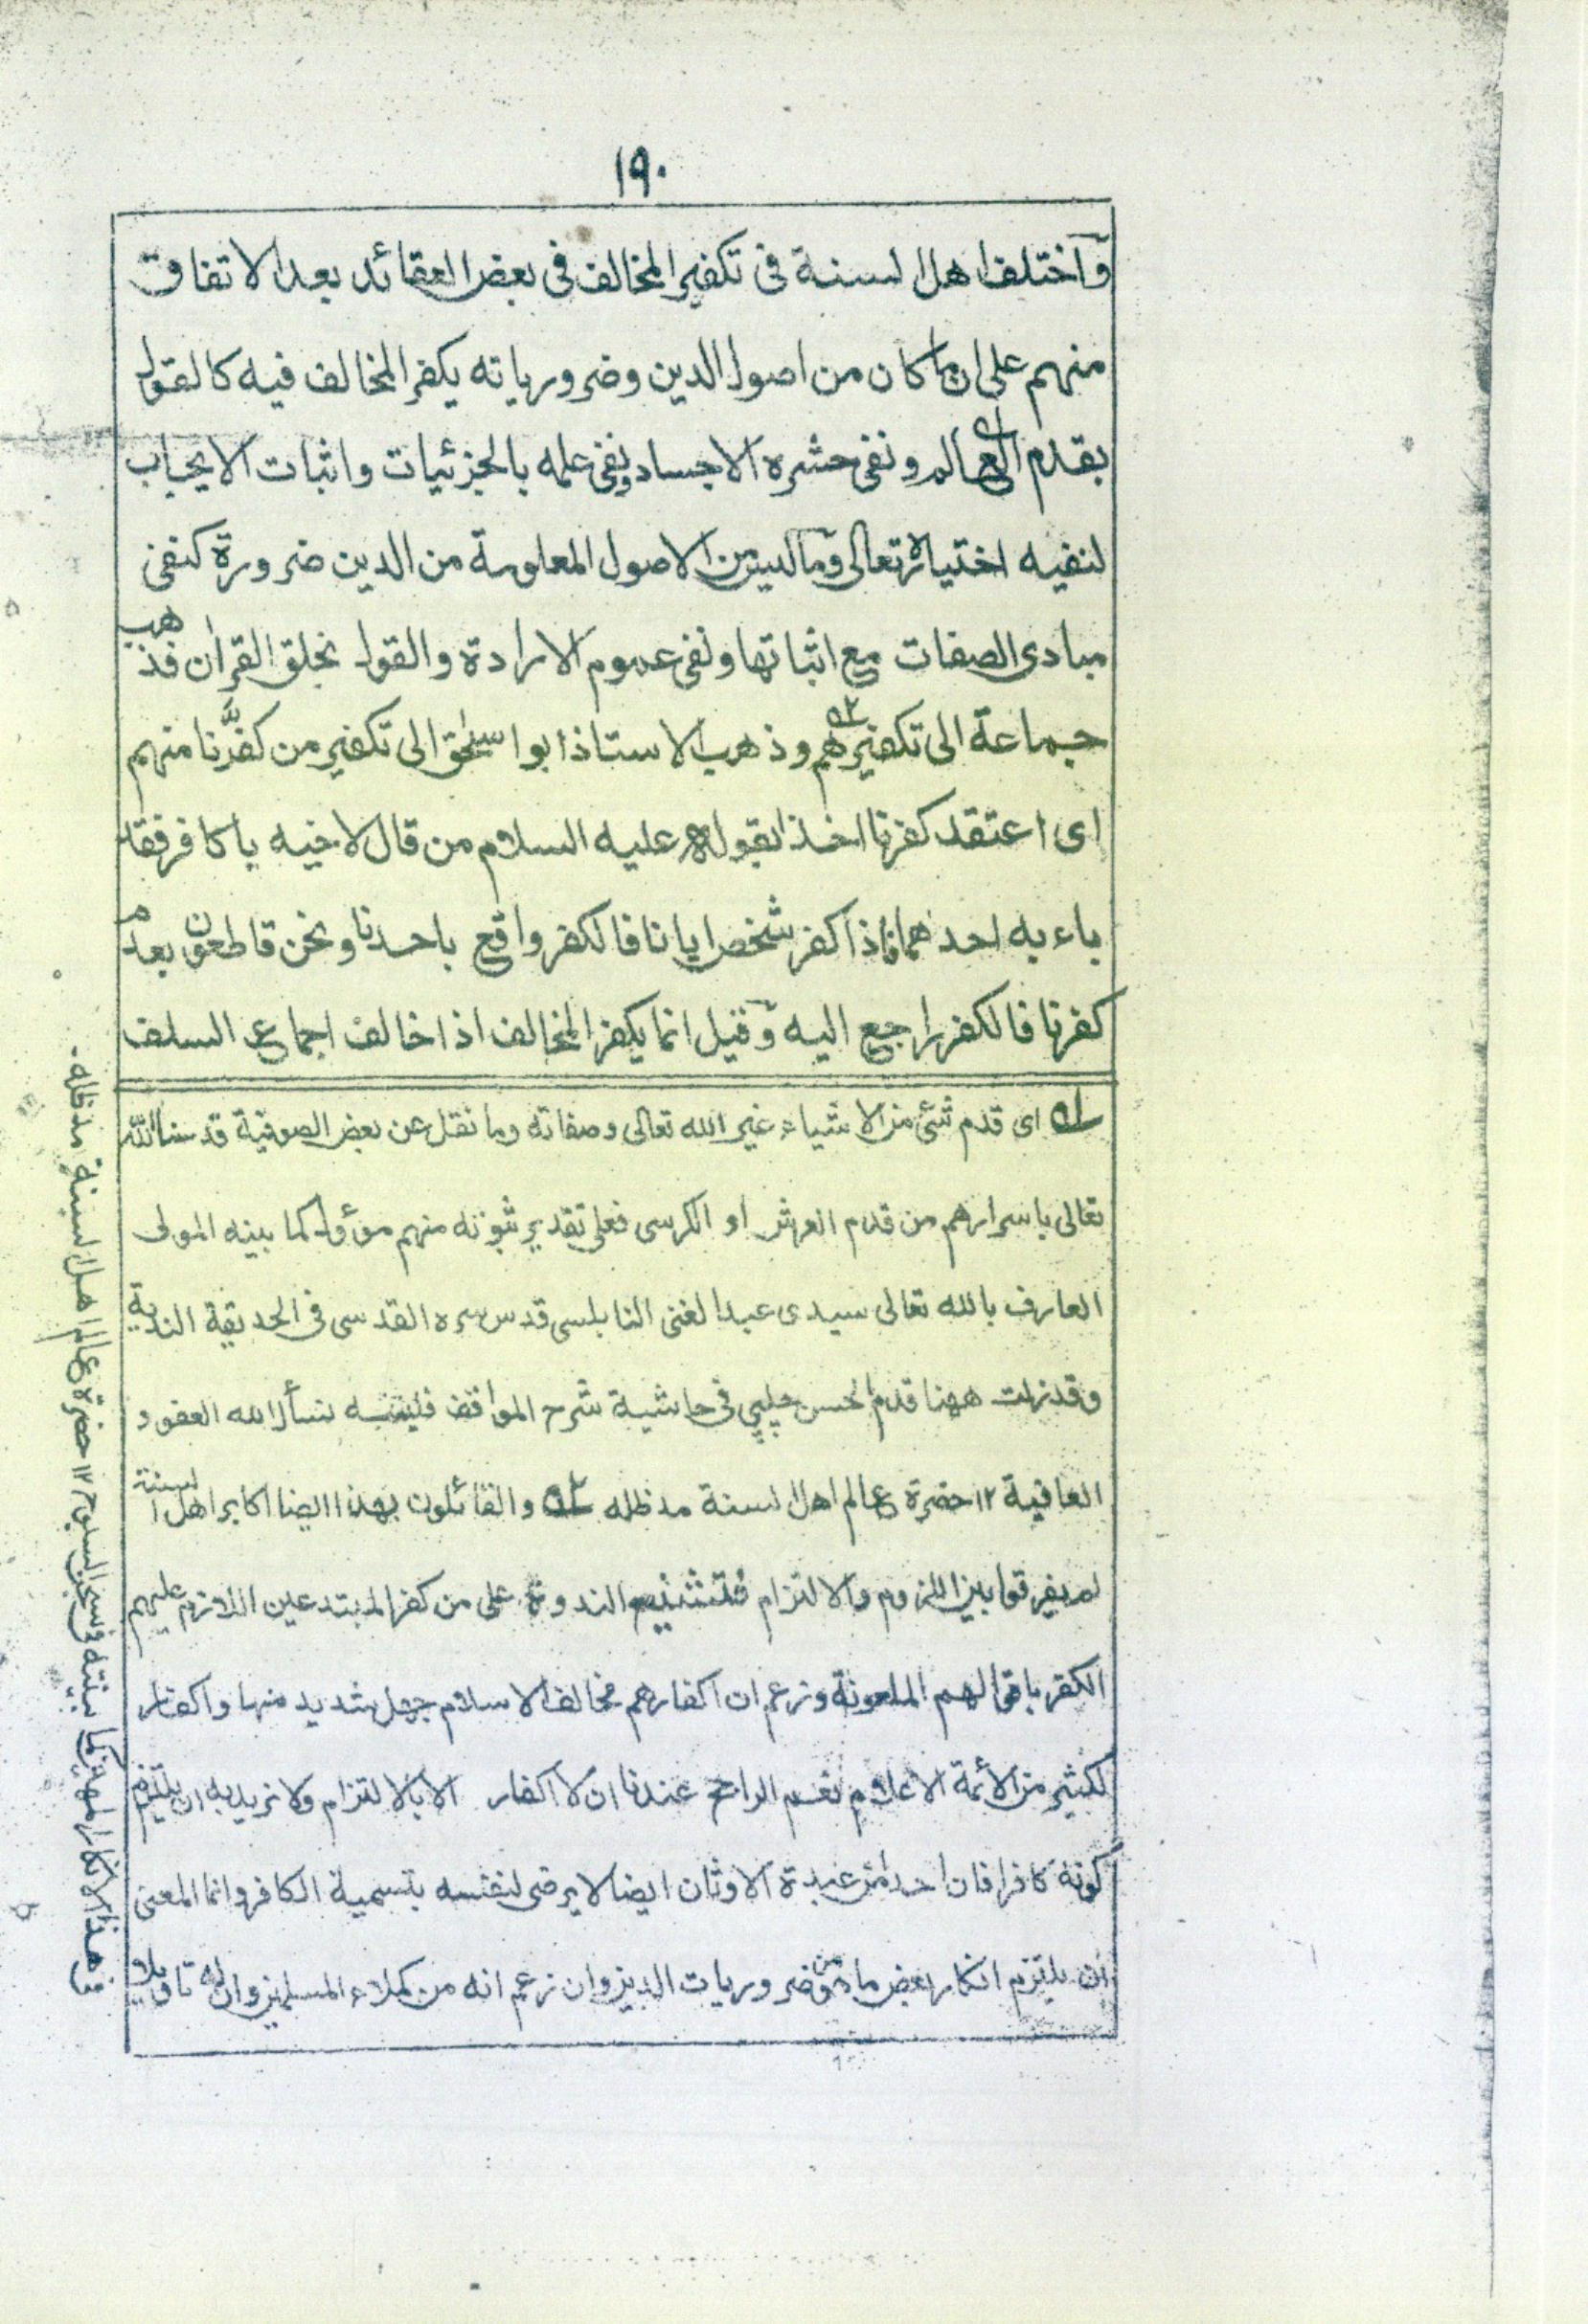 ١٩٠
وَاختلف اهل السنة فى تكفير المخالف فى بعض العقائد بعد الاتفاق
منهم على ان ما كان من اصول الدين وضرورياته يكفر المخالف فيه كالقول
بقدم العالم ونفى حشره الاجساد ونفى علمه بالجزئيات واثبات الايجاب
لنفيه اختياره تعالى وما ليس من الاصول المعلومة من الدين ضرورة كنفى
مبادى الصفات مع اثباتها ونفى عموم الارادة والقول بخلق القران فذهب
جماعة الى تكفيرهم ٢ه وذهب الاستاذ ابوا سحٰق الى تكفير من كفَّرنا منهم
اى اعتقد كفرنا اخذا بقوله عليه السلام من قال لاخيه يا كافر فقد
باء به احدهما فاذا كفر شخص ايانا فالكفر واقع باحدنا ونحن قاطعون بعدم
كفرنا فالكفر راجع اليه وقيل انما يكفر المخالف اذا خالف اجماع السلف
١ه اى قدم شئ من الاشياء غير الله تعالى وصفاته وما نقل عن بعض الصوفية قدسنا الله
تعالى باسرارهم من قدم العرش او الكرسى فعلى تقدير ثبوته منهم مؤول كما بينه المولى
العارف بالله تعالى سيدى عبد الغنى النابلسى قدس سره القدسى فى الحديقة الندية
وقد زلت ههنا قدم لحسن چلپى فى حاشية شرح المواقف فليتنبه نسأل الله العفو و
العافية ١٢ حضرة عالم اهل السنة مد ظله ٢ه والقائلون بهذا ايضا اكابر اهل السنة
لم يفرقوا بين اللزوم والالتزام فتشنيع الندوة على من كفر المبتدعين اللازم عليهم
الكفر باقوالهم الملعونة وزعم ان اكفارهم مخالف الاسلام جهل شديد منها واكفار
لكثير من الأئمة الاعلام نعم الراجح عندنا ان لا اكفار الا بالالتزام ولا نريد به ان يلتزم
كونه كافرا فان احدا من عبدة الاوثان ايضا لا يرضى لنفسه بتسمية الكافر وانما المعنى
ان يلتزم انكار بعض ما هو من ضروريات الدين وان زعم انه من كملاء المسلمين وان له تاويلا
فى هذا الانكار المهين كما بينته فى سبحن السبوح ١٢ حضرة عالم اهل السنة مد ظله